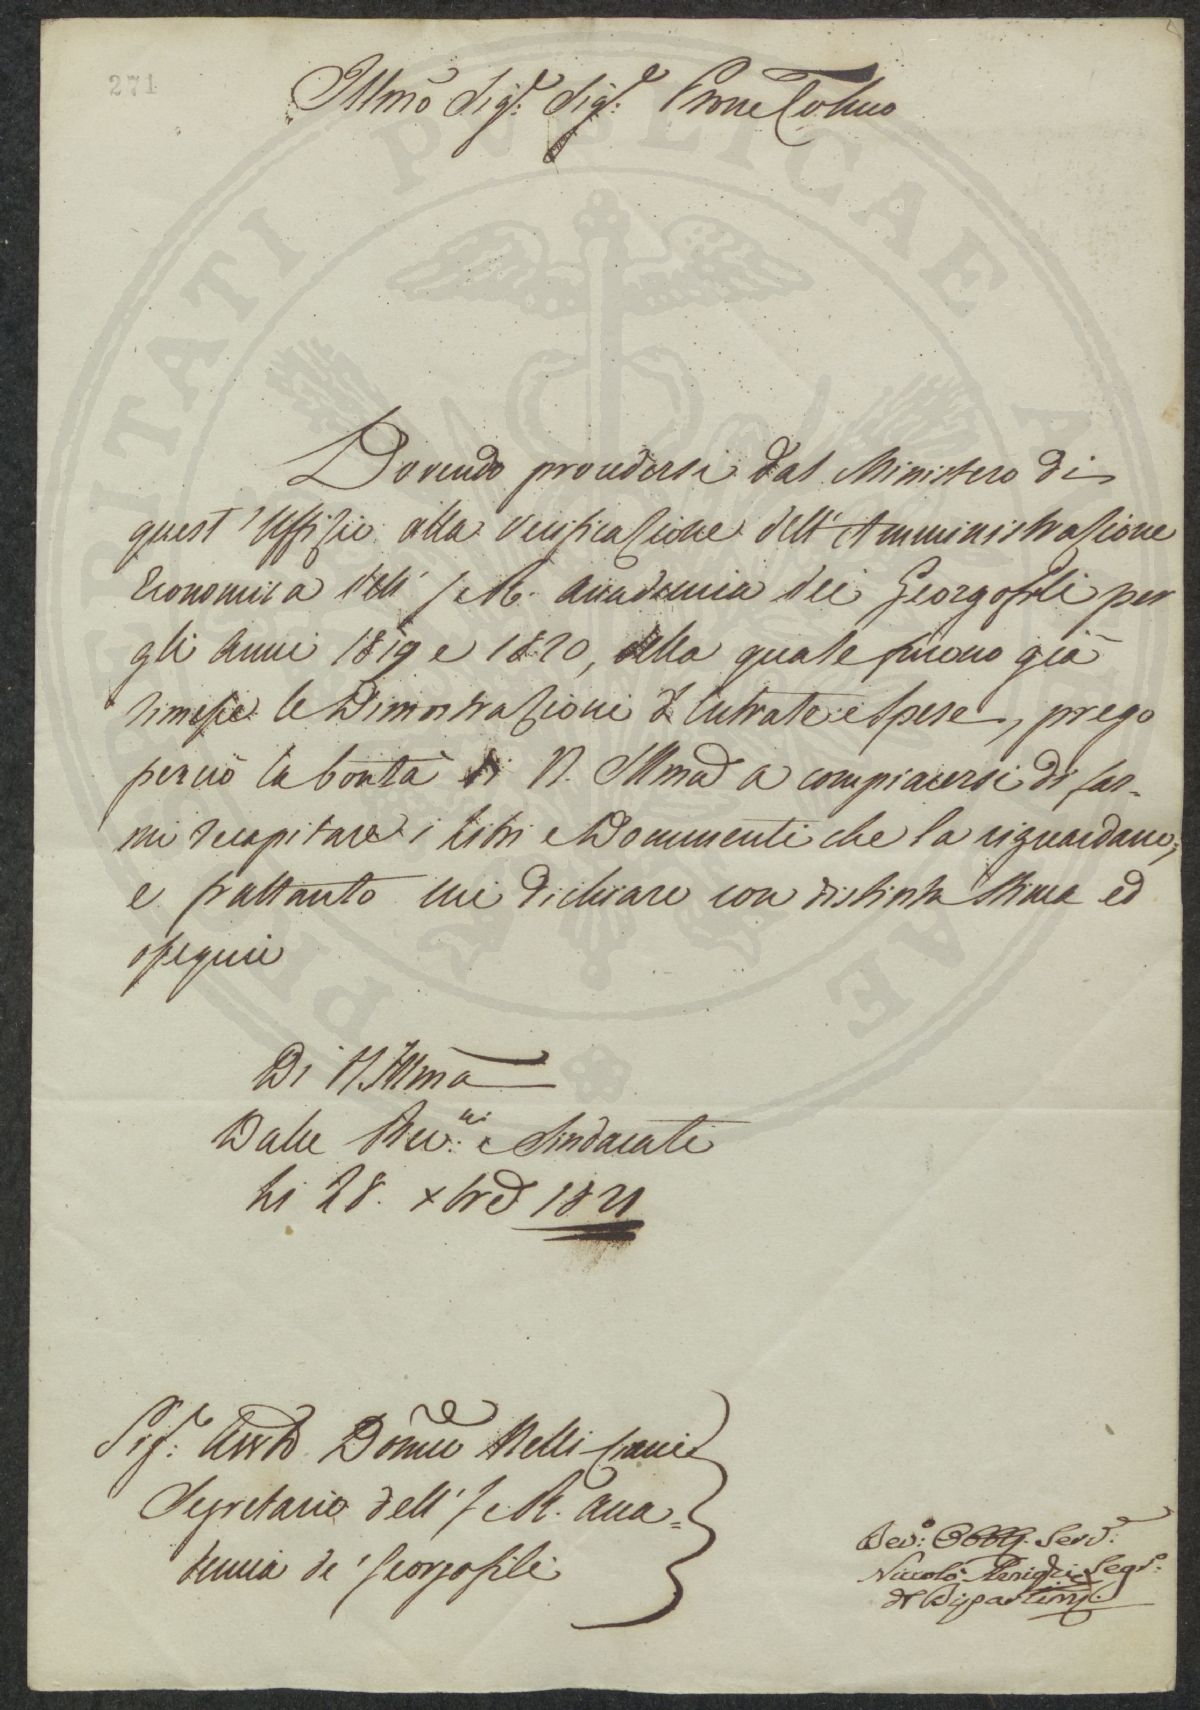 271
Illmõ Sigr: Sigr: Prõne Colmo
Dovendo procedersi dal Ministero di
quest'Uffizio alla verificazione dell'Amministrazione
Economica dell' I e R. Accademia dei Georgofili per
gli Anni 1819 e 1820, alla quale furono già
rimesse le Dimostrazioni d'Entrate e Spese, prego
perciò la bontà di V. Illma a compiacersi di far-
mi recapitare i libri e Documenti che la riguardano,
e frattanto mi dichiaro con distinta stima ed
ossequio
Di V. Illma
Dalle Revni: e Sindacati
li 28. Xbre 1821
Sigr: Avvto Domco Nelli
Segretario dell' I e R. Acca=
demia de' Georgofili
Devo: Obblg. Servr:
Niccolò Segro:
di Dipartimto.
PROSPERITATI PUBLICAE AUGENDAE